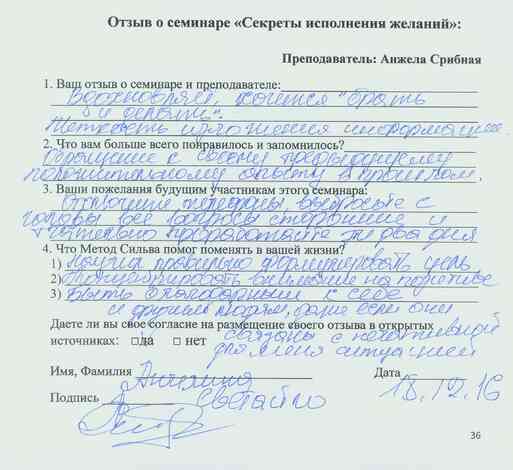 Отзыв о семинаре «Секреты исполнения желаний»:
Преподаватель: Анжела Срибная
1. Ваш отзыв о семинаре и преподавателе:
Вдохновляет, хочется "брать
и делать".
Четкость изложения информации.
2. Что вам больше всего понравилось и запомнилось?
Обращение к своему предыдущему
положительному опыту в прошлом.
3. Ваши пожелания будущим участникам этого семинара:
Отключите телефоны, выбросьте с
головы все вопросы сторонние и
тщательно проработайте эти два дня
4. Что Метод Сильва помог поменять в вашей жизни?
1) Научил правильно формулировать цель
2) внимание на позитиве
3) Быть благодарным к себе
и другим людям, даже если они
Даете ли вы свое согласие на размещение своего отзыва в открытых
связаны с негативной
источниках: □да □ нет
для меня ситуацией
Имя, Фамилия Ангелина
Дата 18.12.16
Подпись Светайло
36